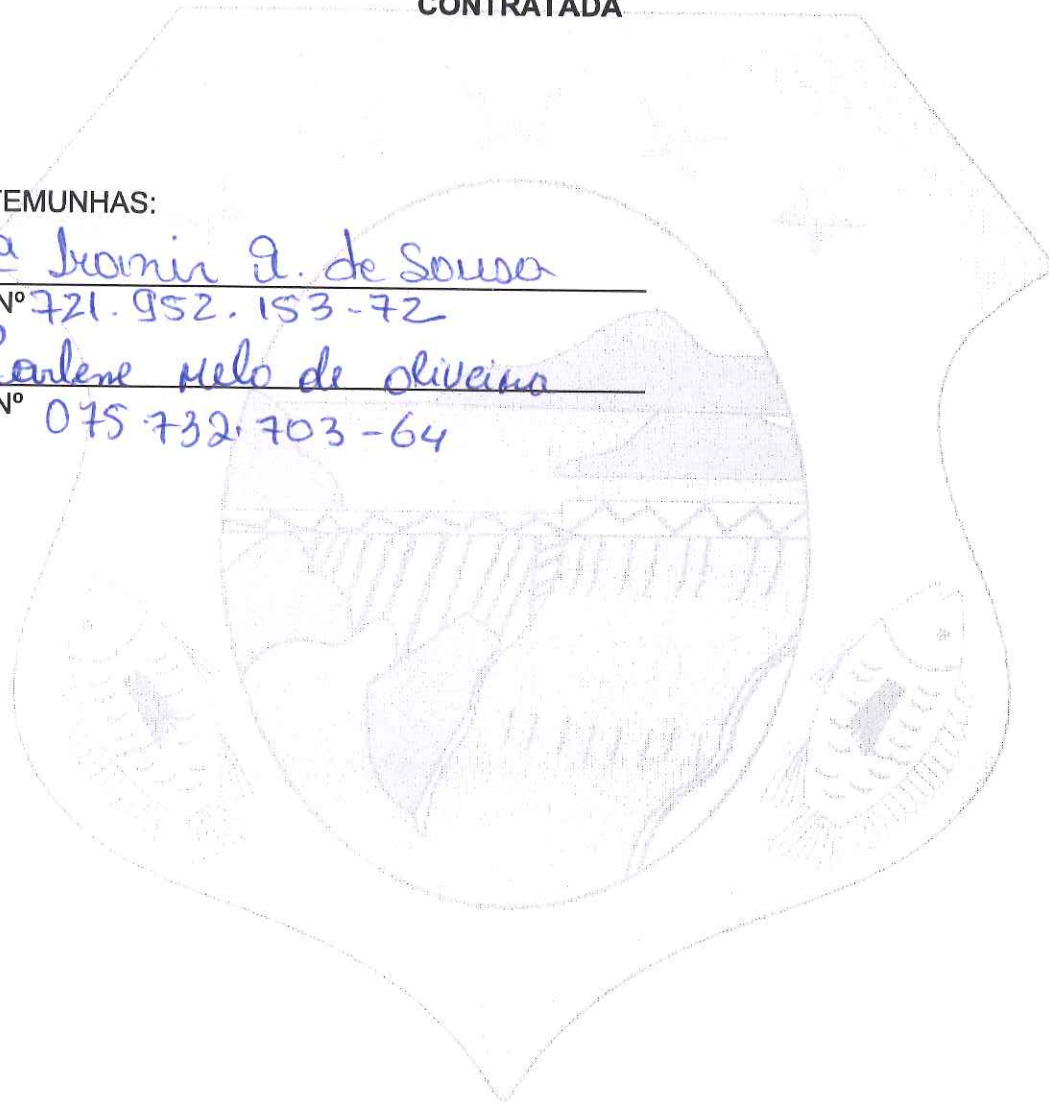 CONTRATADA
TEMUNHAS:
ª Iranir A. de Sousa
Nº 721.952.153-72
Carlene Melo de oliveira
Nº 075.732.703-64